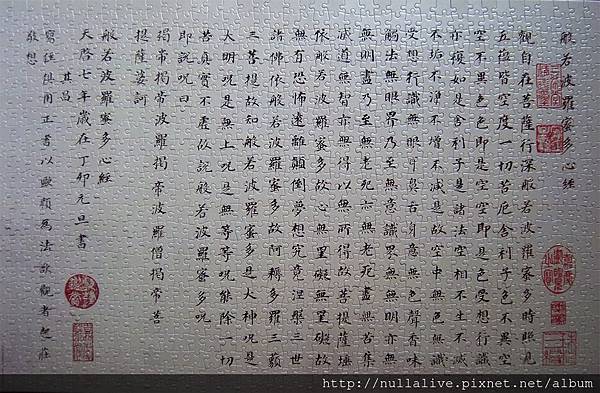 般若波羅蜜多心經
觀自在菩薩行深般若波羅蜜多時照見
五蘊皆空度一切苦厄舍利子色不異空
空不異色色即是空空即是色受想行識
亦復如是舍利子是諸法空相不生不滅
不垢不淨不增不減是故空中無色無
想行識無眼耳鼻舌身意無色聲香味
觸法無眼界乃至無意識界無無明亦無
無明盡乃至無老死亦無老死盡無苦集
滅道無智亦無得以無所得故菩提薩埵
依般若波羅蜜多故心無罣礙無罣礙故
無有恐怖遠離顛倒夢想究竟涅槃三世
諸佛依般若波羅蜜多故阿耨多羅三藐
三菩提故知般若波羅蜜多是大神呪是
大明呪是無上呪是無等等呪能除一切
苦真實不虛故說般若波羅蜜多呪
即說呪曰
揭帝揭帝波羅揭帝波羅僧揭帝菩
提薩婆訶
般若波羅蜜多心經
天啓七年歲在丁卯元旦書
其昌
寫經俱用正書以歐顏為法欲觀者起莊
敬想
http://nullalive.pixnet.net/album